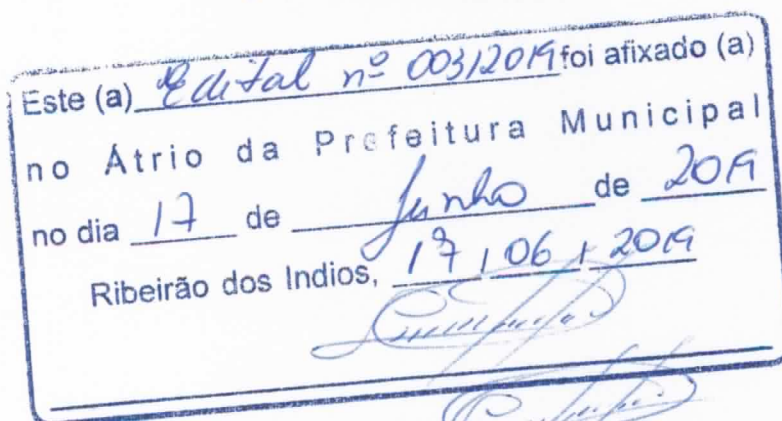 Este (a) Edital nº 003/2019 foi afixado (a)
no Átrio da Prefeitura Municipal
no dia 17 de Junho de 2019
Ribeirão dos Indios, 17 / 06 / 2019